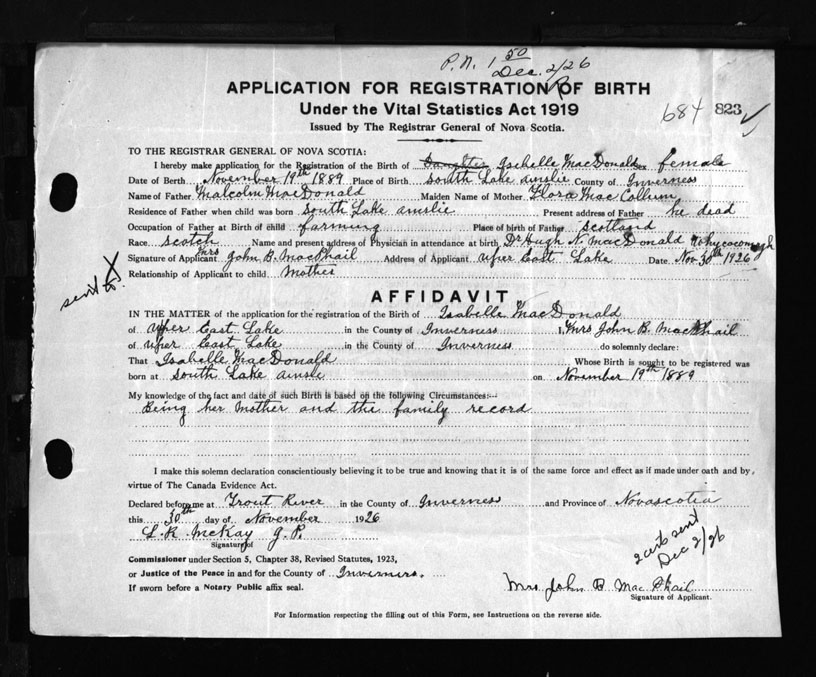 P.N. 1 50
Dec. 2/26
APPLICATION FOR REGISTRATION OF BIRTH
Under the Vital Statistics Act 1919
684 823
Issued by The Registrar General of Nova Scotia.
TO THE REGISTRAR GENERAL OF NOVA SCOTIA:
I hereby make application for the Registration of the Birth of Daughter Isebelle MacDonald sex female
Date of Berth November 19th 1889 Place of Birth South Lake ainslie County of Inverness
Name of Father Malcolm MacDonald Maiden Name of Mother Flora MacCollum
Residence of Father when child was born South Lake ainslie Present address of Father he dead
Occupation of Father at Birth of child farming Place of birth of Father Scotland
Race scotch Name and present address of Physician in attendance at birth Dr Hugh N. MacDonald Whycocomagh
Signature of Applicant Mrs John B. MacPhail Address of Applicant Upper East Lake Date Nov 30th 1926
Relationship of Applicant to child Mother
sent X
AFFIDAVIT
IN THE MATTER of the application for the registration of the Birth of Isabelle MacDonald
of Upper East Lake in the County of Inverness I, Mrs John B. MacPhail
of Upper East Lake in the County of Inverness do solemnly declare:
That Isabelle MacDonald Whose Birth is sought to be registered was
born at South Lake ainslie on November 19th 1889
My knowledge of the fact and date of such Birth is based on the following Circumstances:—
Being her Mother and the family record
I make this solemn declaration conscientiously believing it to be true and knowing that it is of the same force and effect as if made under oath and by
virtue of The Canada Evidence Act.
Declared before me at Trout River in the County of Inverness and Province of Novascotia
this 30th day of November 1926
L. R. McKay J. P.
Signature of
2 certs sent
Dec 2/26
Commissioner under Section 5, Chapter 38, Revised Statutes, 1923,
or Justice of the Peace in and for the County of Inverness.
If sworn before a Notary Public affix seal.
Mrs John B MacPhail
Signature of Applicant.
For Information respecting the filling out of this Form, see Instructions on the reverse side.